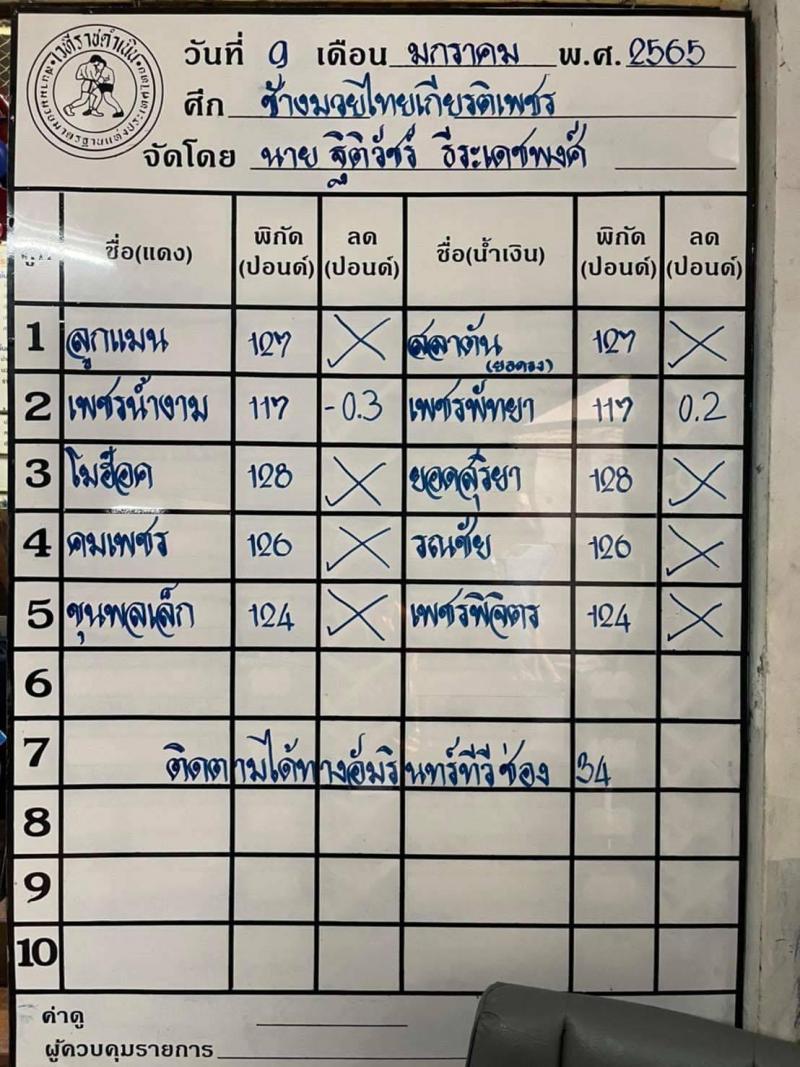 เวทีราชดำเนิน
สนามมวยมาตรฐานแห่งประเทศไทย
วันที่ 9 เดือน มกราคม พ.ศ. 2565
ศึก ช้างมวยไทยเกียรติเพชร
จัดโดย นาย ฐิติวัชร์ ธีระเดชพงศ์
ชื่อ(แดง) พิกัด (ปอนด์) ลด (ปอนด์) ชื่อ(น้ำเงิน) พิกัด (ปอนด์) ลด (ปอนด์)
1 ลูกแมน 127 X สลาตัน 127 X
2 เพชรน้ำงาม 117 -0.3 เพชรพัทยา 117 0.2
3 โมฮ็อค 128 X ยอดสุริยา 128 X
4 คมเพชร 126 X รณชัย 126 X
5 ขุนพลเล็ก 124 X เพชรพิจิตร 124 X
6
7 ติดตามได้ทางอัมรินทร์ทีวี ช่อง 34
8
9
10
ค่าดู
ผู้ควบคุมรายการ